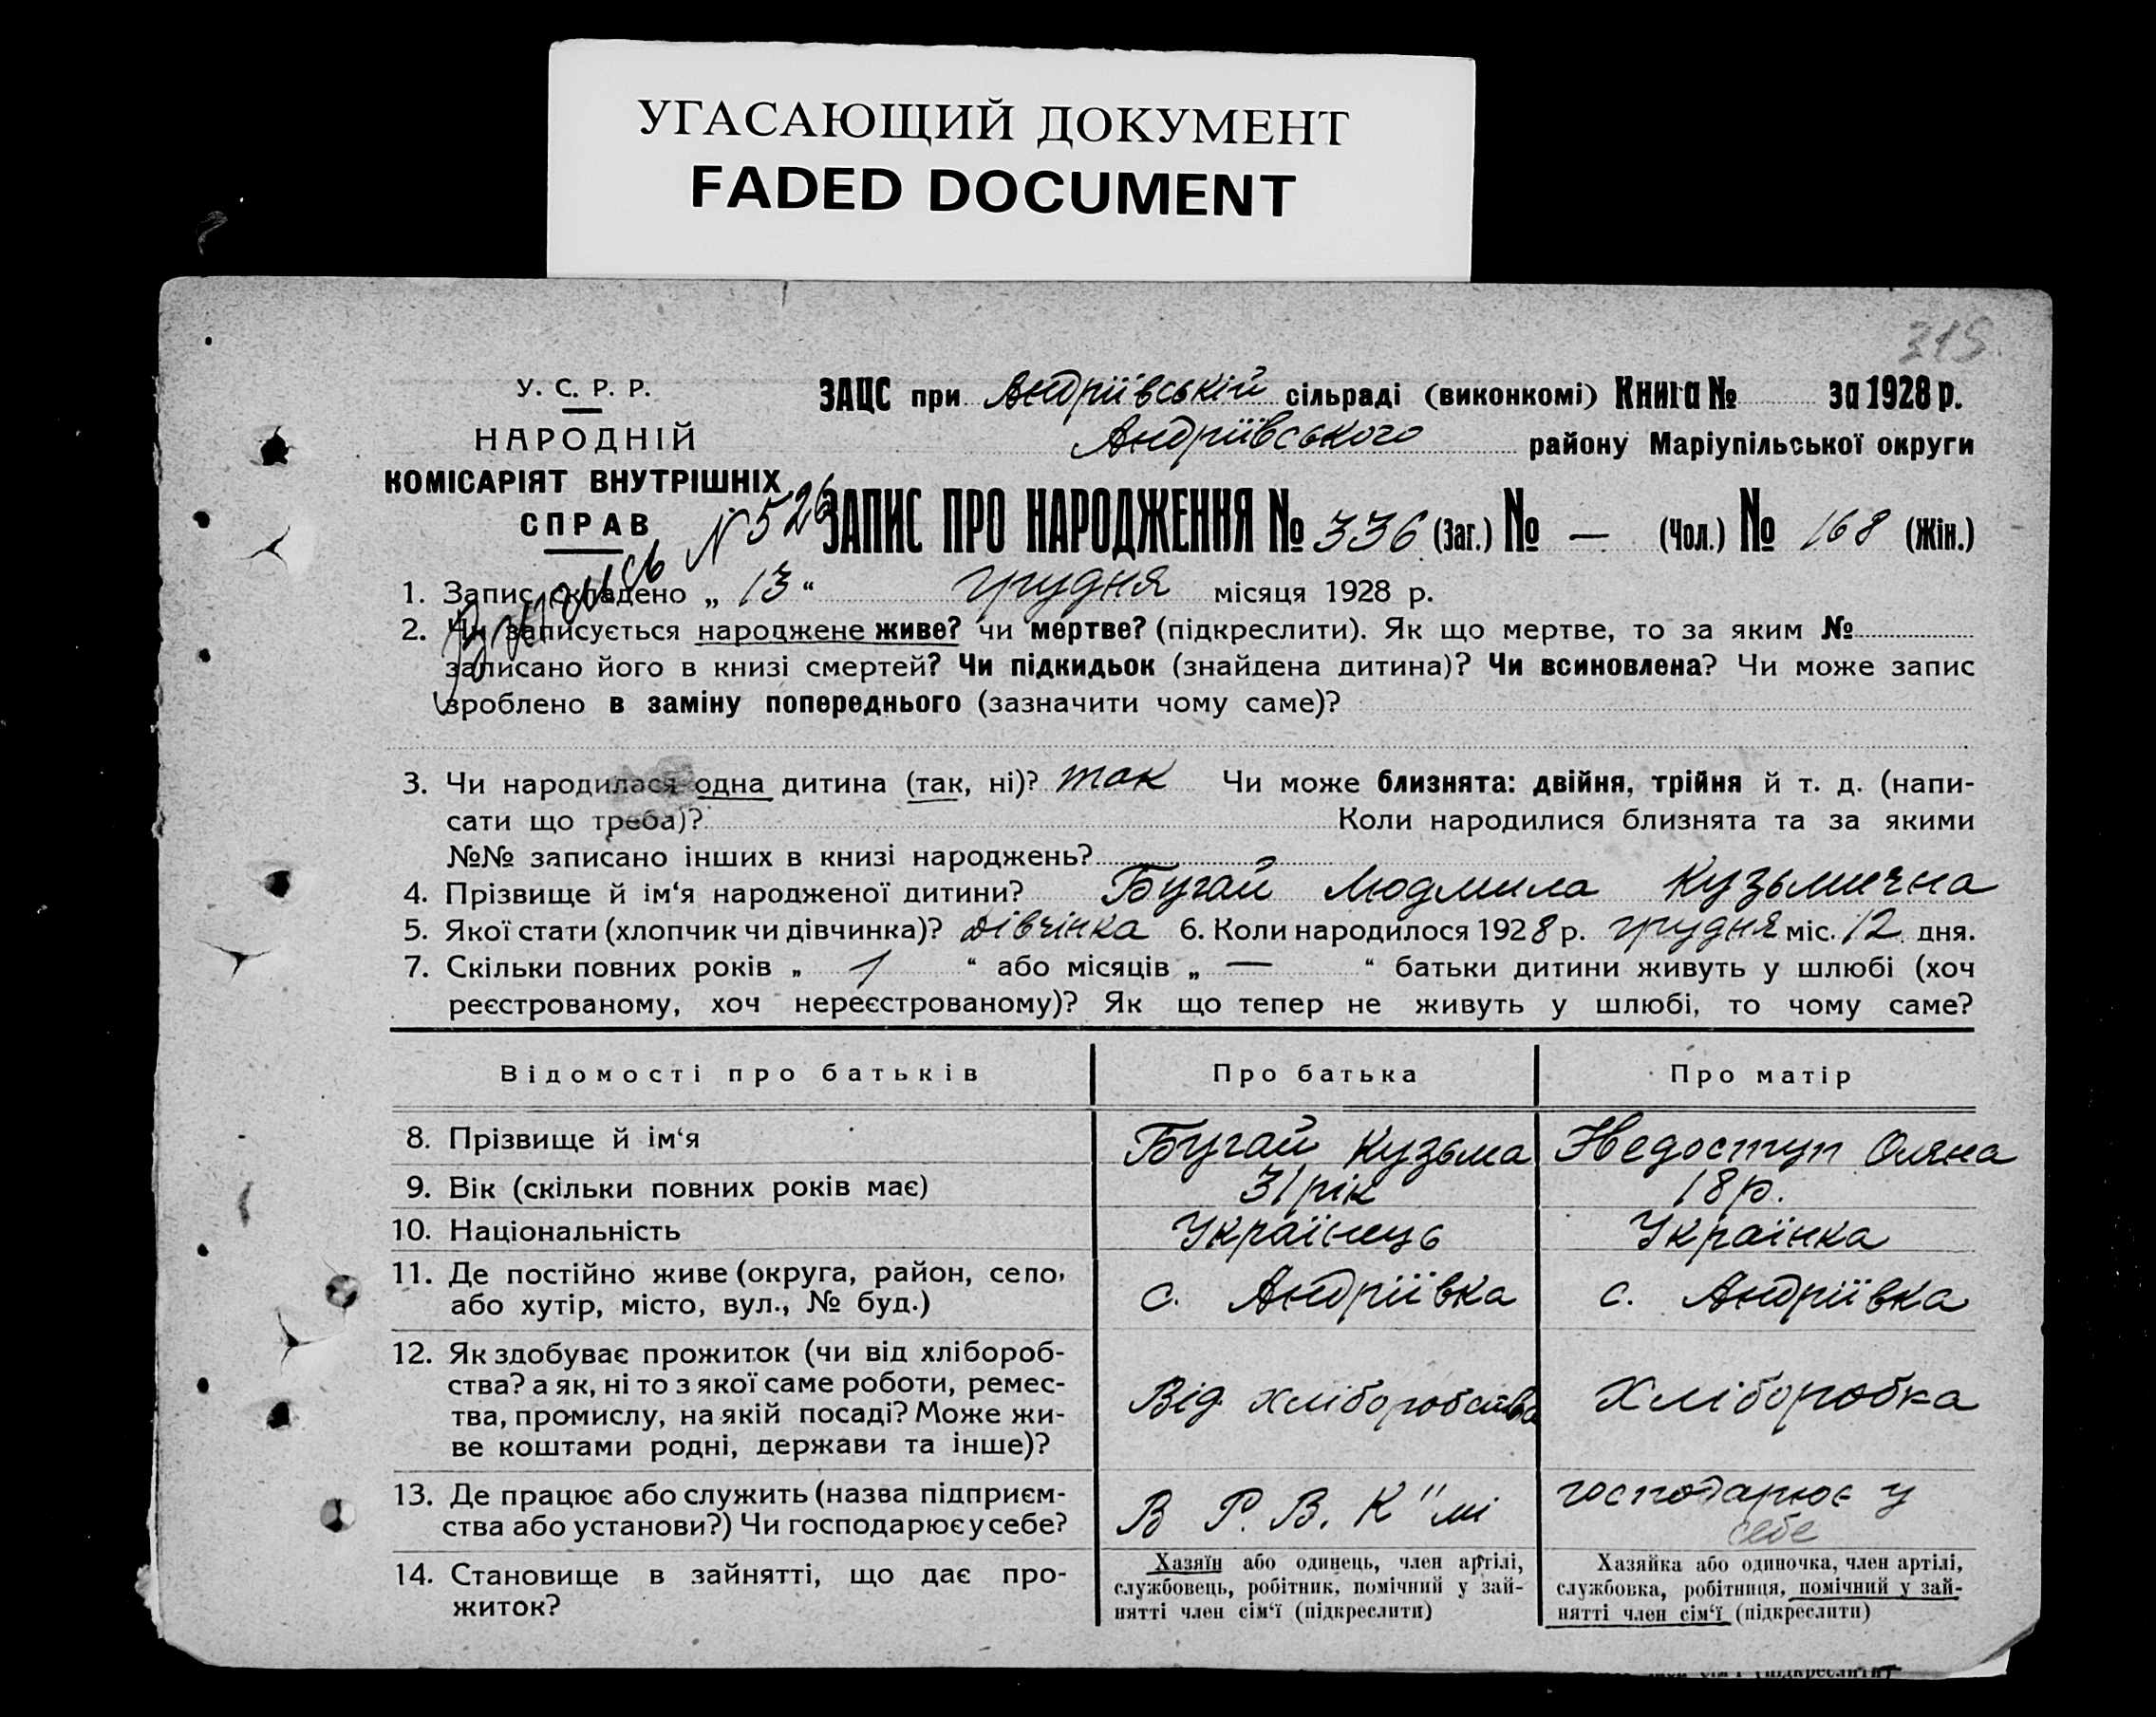 УГАСАЮЩИЙ ДОКУМЕНТ
FADED DOCUMENT
315
У. С. Р. Р.
НАРОДНІЙ
КОМІСАРІЯТ ВНУТРІШНІХ
СПРАВ
N 526
ЗАЦС при Андріївській сільраді (виконкомі) Книга № за 1928 р.
Андріївського району Маріупільської округи
ЗАПИС ПРО НАРОДЖЕННЯ № 336 (Заг.) № — (Чол.) № 168 (Жін.)
1. Запис складено „ 13 “ грудня місяця 1928 р.
2. Чи записується народжене живе? чи мертве? (підкреслити). Як що мертве, то за яким №
записано його в книзі смертей? Чи підкидьок (знайдена дитина)? Чи всиновлена? Чи може запис
зроблено в заміну попереднього (зазначити чому саме)?
3. Чи народилася одна дитина (так, ні)? так Чи може близнята: двійня, трійня й т. д. (напи-
сати що треба)? Коли народилися близнята та за якими
№№ записано інших в книзі народжень?
4. Прізвище й ім‘я народженої дитини? Бугай Людмила Кузьмична
5. Якої стати (хлопчик чи дівчинка)? дівчінка 6. Коли народилося 1928 р. грудня міс. 12 дня.
7. Скільки повних років „ 1 “ або місяців „ — “ батьки дитини живуть у шлюбі (хоч
реєстрованому, хоч нереєстрованому)? Як що тепер не живуть у шлюбі, то чому саме?
Відомості про батьків Про батька Про матір
8. Прізвище й ім‘я Бугай Кузьма Недоступ Оляна
9. Вік (скільки повних років має) 31 рік 18 р.
10. Національність Українець Українка
11. Де постійно живе (округа, район, село,
або хутір, місто, вул., № буд.)
с. Андріївка с. Андріївка
12. Як здобуває прожиток (чи від хлібороб-
ства? а як, ні то з якої саме роботи, ремес-
тва, промислу, на якій посаді? Може жи-
ве коштами родні, держави та інше)?
Від хліборобства Хліборобка
13. Де працює або служить (назва підприєм-
ства або установи?) Чи господарює у себе?
В Р. В. К"мі господарює у
себе
14. Становище в зайнятті, що дає про-
житок?
Хазяїн або одинець, член артілі,
службовець, робітник, помічний у зай-
нятті член сім‘ї (підкреслити)
Хазяйка або одиночка, член артілі,
службовка, робітниця, помічний у зай-
нятті член сім‘ї (підкреслити)